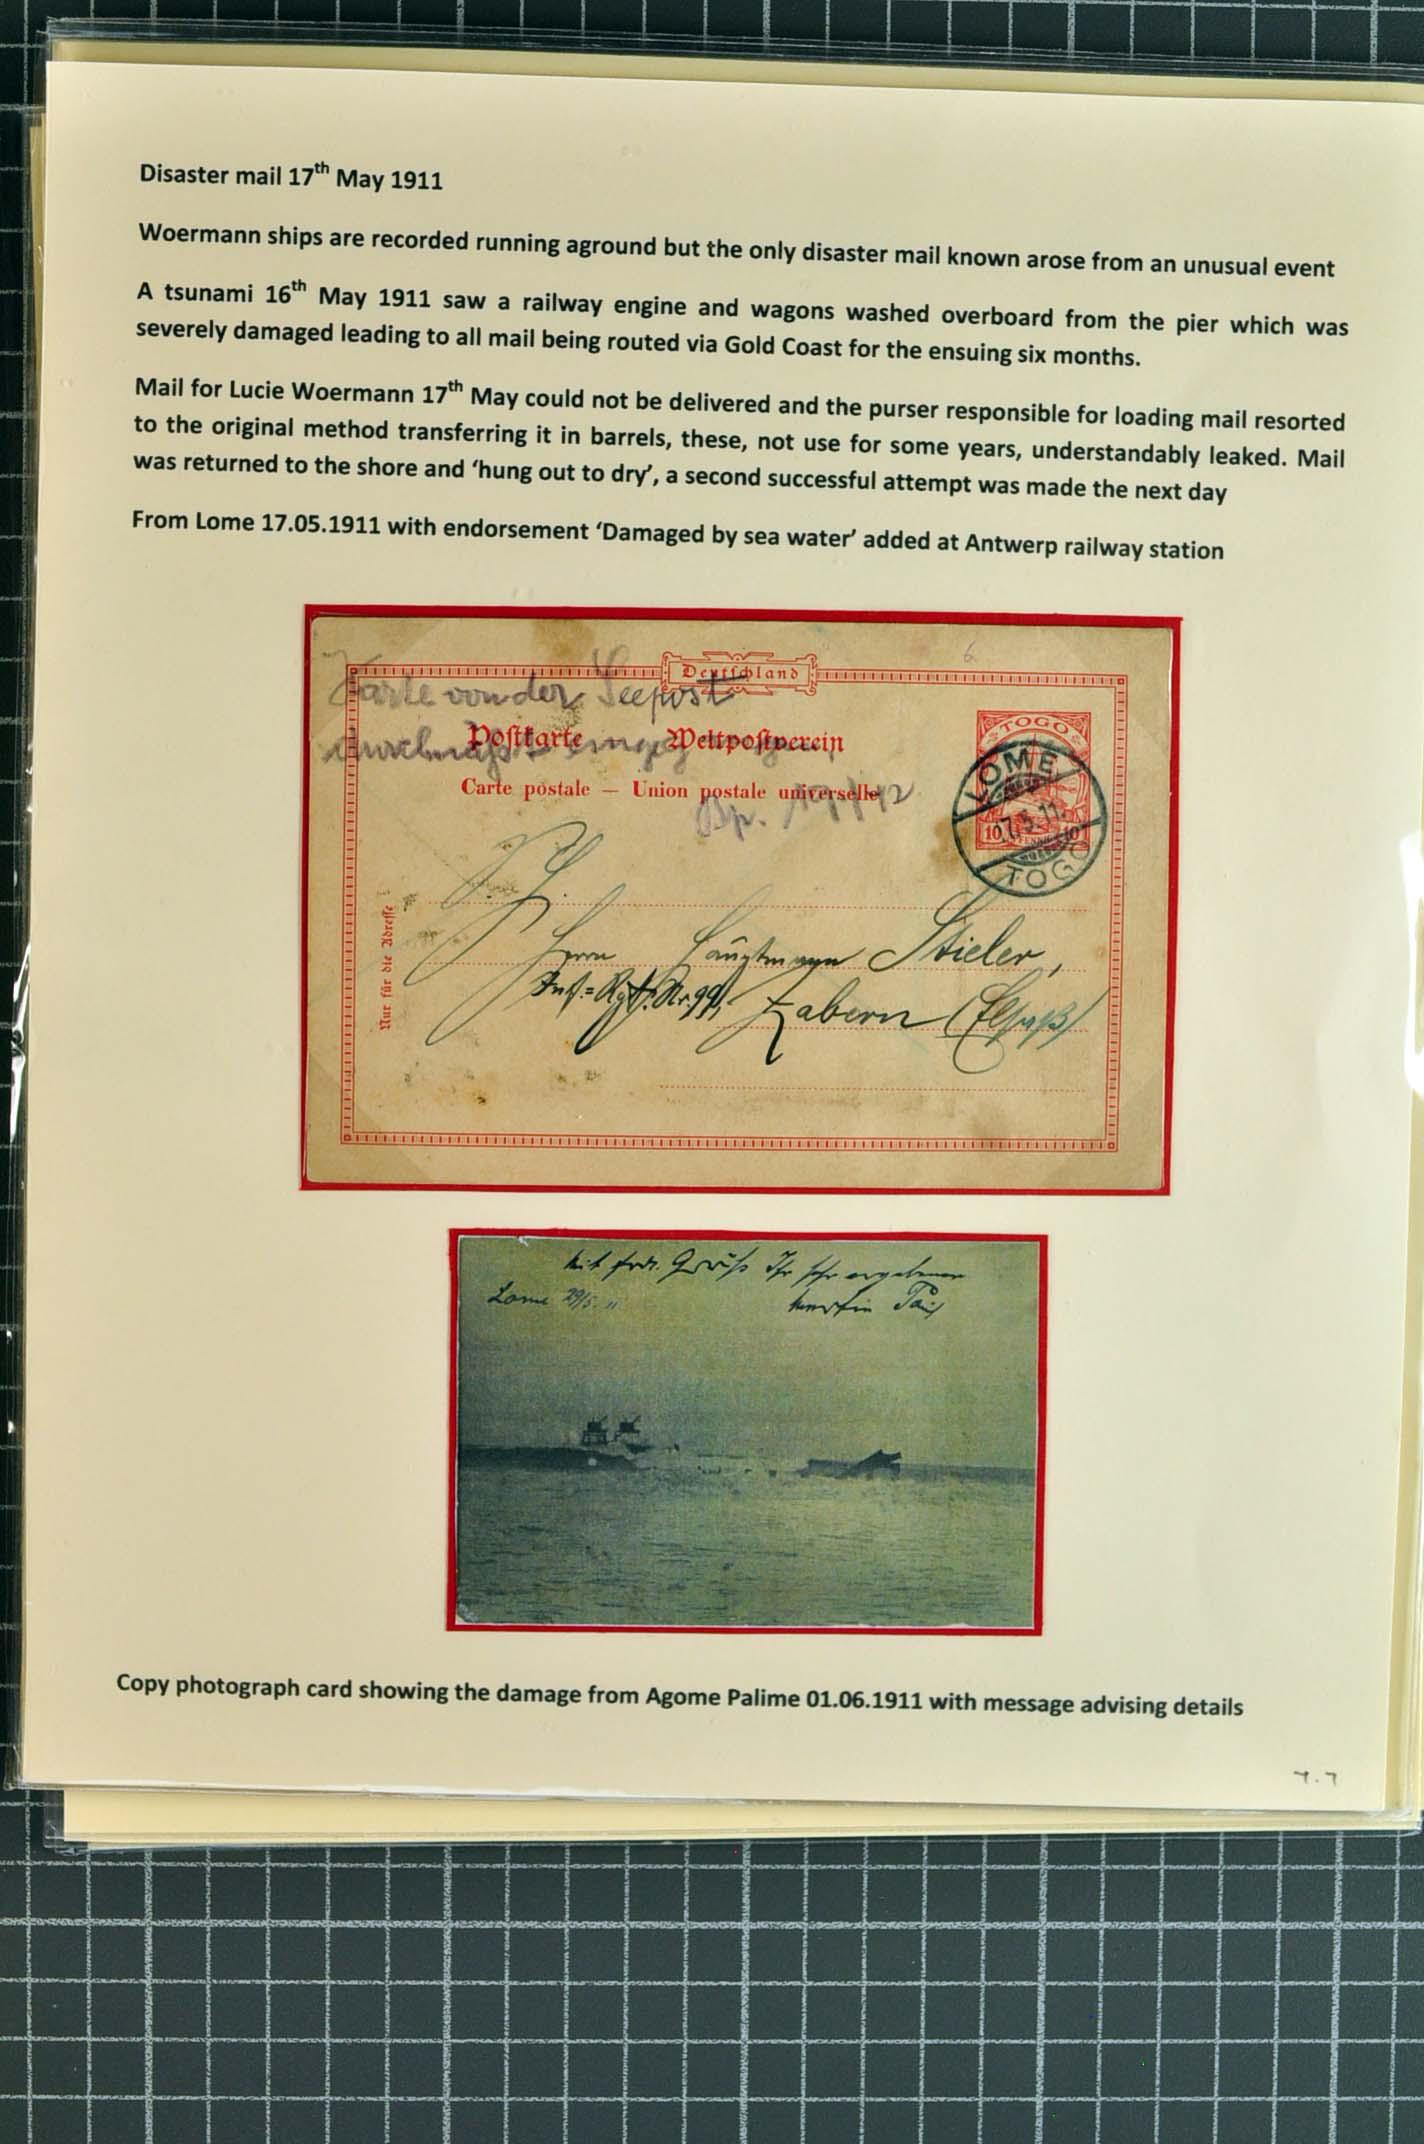 Disaster mail 17th May 1911
Woermann ships are recorded running aground but the only disaster mail known arose from an unusual event
A tsunami 16th May 1911 saw a railway engine and wagons washed overboard from the pier which was
severely damaged leading to all mail being routed via Gold Coast for the ensuing six months.
Mail for Lucie Woermann 17th May could not be delivered and the purser responsible for loading mail resorted
to the original method transferring it in barrels, these, not use for some years, understandably leaked. Mail
was returned to the shore and ‘hung out to dry’, a second successful attempt was made the next day
From Lome 17.05.1911 with endorsement ‘Damaged by sea water’ added at Antwerp railway station
6
Deutschland
Karte von der Seepost
Postkarte Weltpostverein
Carte postale — Union postale universelle
Bp.
TOGO
10 PFENNIG 10
LOME
17.5.11.
TOGO
Nur für die Adresse
Herrn Hauptmann Stieler,
Inf.=Rgt. Nr. 99,
Zabern (Elsaß)
Mit frdl. Gruß Ihr sehr ergebener
Lome 29/5. 11
Martin
Copy photograph card showing the damage from Agome Palime 01.06.1911 with message advising details
7.7